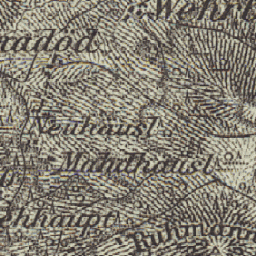 Wehrl
nadöd
Neuhäusl
Mitulhäusl
hhaupt
Ruhmann